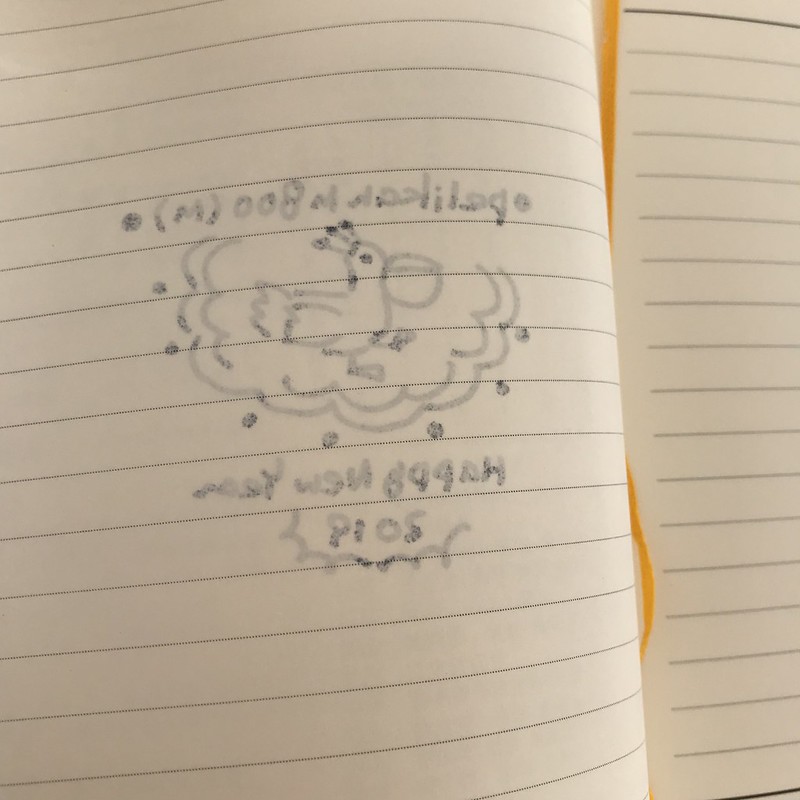 pelikan m 800 (m)
Happy New Year
2018